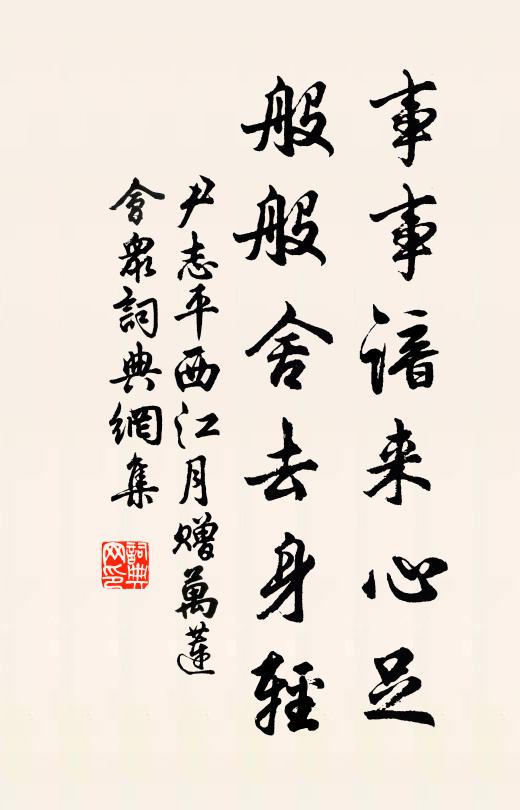 事事谙来心足
般般舍去身輕
尹志平西江月赠萬蓮
會衆詞典網集
詞典
网印